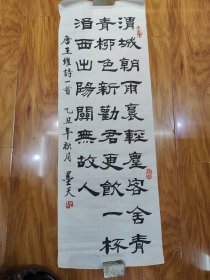 渭城朝雨裛輕塵客舍青
青柳色新勸君更飲一杯
酒西出陽關無故人
唐王維詩一首 乙丑年秋月 墨天